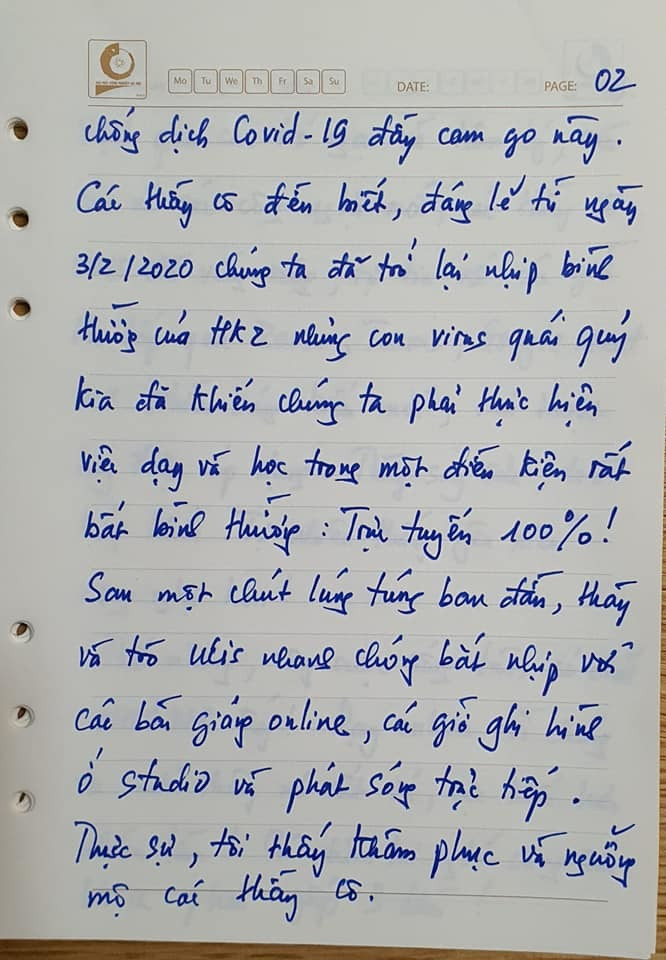 Mo Tu We Th Fr Sa Su DATE: PAGE: 02
chống dịch Covid-19 đầy cam go này.
Các thầy cô đều biết, đáng lẽ từ ngày
3/2/2020 chúng ta đã trở lại nhịp bình
thường của HK2 nhưng con virus quái quỷ
kia đã khiến chúng ta phải thực hiện
việc dạy và học trong một điều kiện rất
bất bình thường: Trực tuyến 100%!
Sau một chút lúng túng ban đầu, thầy
và trò UEis nhanh chóng bắt nhịp với
các bài giảng online, các giờ ghi hình
ở studio và phát sóng trực tiếp.
Thực sự, tôi thấy khâm phục và ngưỡng
mộ các thầy cô.